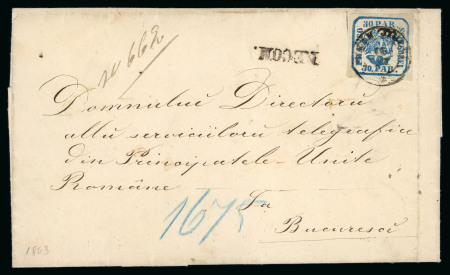 30 PAR.
FRANCO
30. PAR.
RECOM.
Nº 662
Domnului Directoru
allu serviciiloru telegrafice
din Principatele-Unite
Române
La
1675
Bucuresci
1863